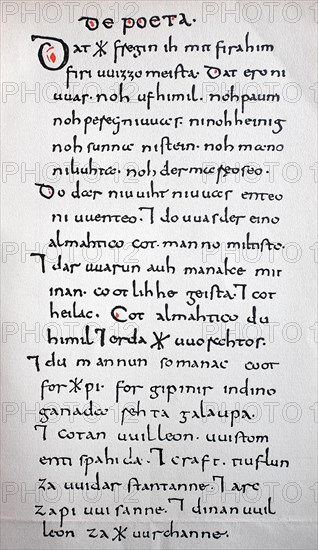 De poeta.
Dat * fregin ih mit firahim
firi uuizzo meista. Dat ero ni
uuas. noh ufhimil. noh paum
noh pereg ni uuas. ni noh heinig
noh sunna ni stein. noh mano
ni liuhta. noh der mareo seo.
Do dar niuuiht niuuas enteo
ni uuenteo. ⁊ do uuas der eino
almahtico cot. manno miltisto.
⁊ dar uuarun auh manake mit
inan. cootlihhe geista. ⁊ cot
heilac. Cot almahtico du
himil ⁊ erda * uuorhtos.
⁊ du mannun so manac coot
for * pi. for gipmir indino
ganada rehta galaupa.
⁊ cotan uuilleon. uuistom
enti spahida. ⁊ craft. tiuflun
za uuidar stantanne. ⁊ arc
zapi uuisanne. ⁊ dinan uuil
leon za * uurchanne.